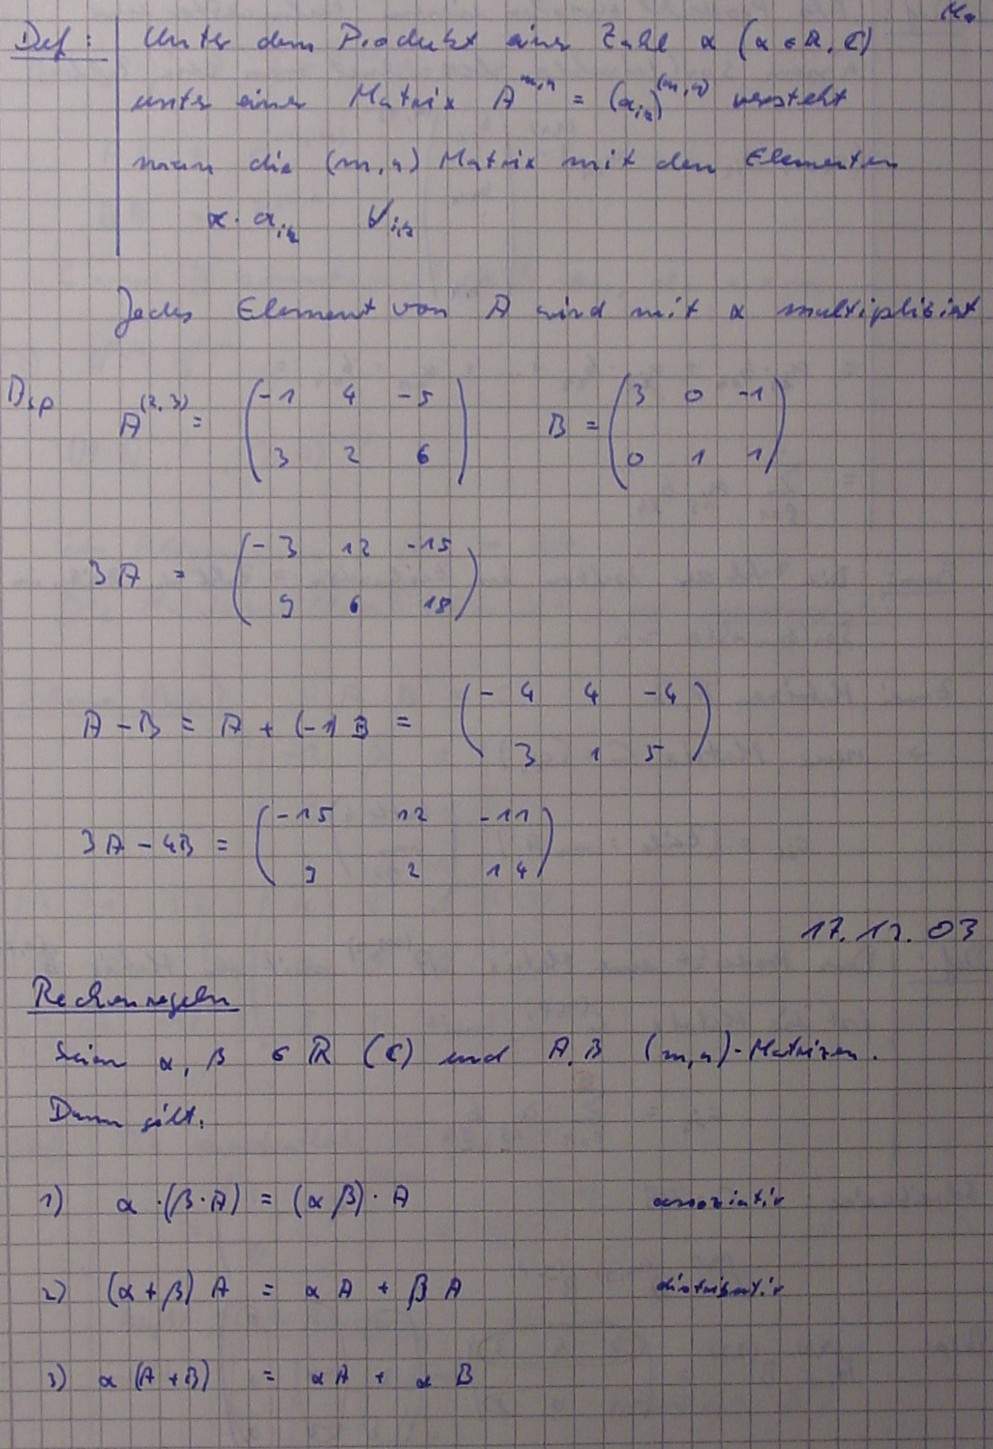 Def: Unter dem Produkt einer Zahl α (α ∈ R, C)
unter einer Matrix A^{m,n} = (a_{ik})^{(m,n)} versteht
man die (m,n) Matrix mit den Elementen
α · a_{ik} ∀ i,k
Jedes Element von A wird mit α multipliziert
Bsp A^{(2,3)} = ( -1 4 -5 ) B = ( 3 0 -1 )
( 3 2 6 ) ( 0 1 1 )
3A = ( -3 12 -15 )
( 9 6 18 )
A - B = A + (-1) B = ( -4 4 -4 )
( 3 1 5 )
3A - 4B = ( -15 12 -11 )
( 9 2 14 )
17.12.03
Rechenregeln
Seien α, β ∈ R (C) und A, B (m,n)-Matrizen.
Dann gilt:
1) α · (β · A) = (α β) · A assoziativ
2) (α + β) A = α A + β A distributiv
3) α (A + B) = α A + α B